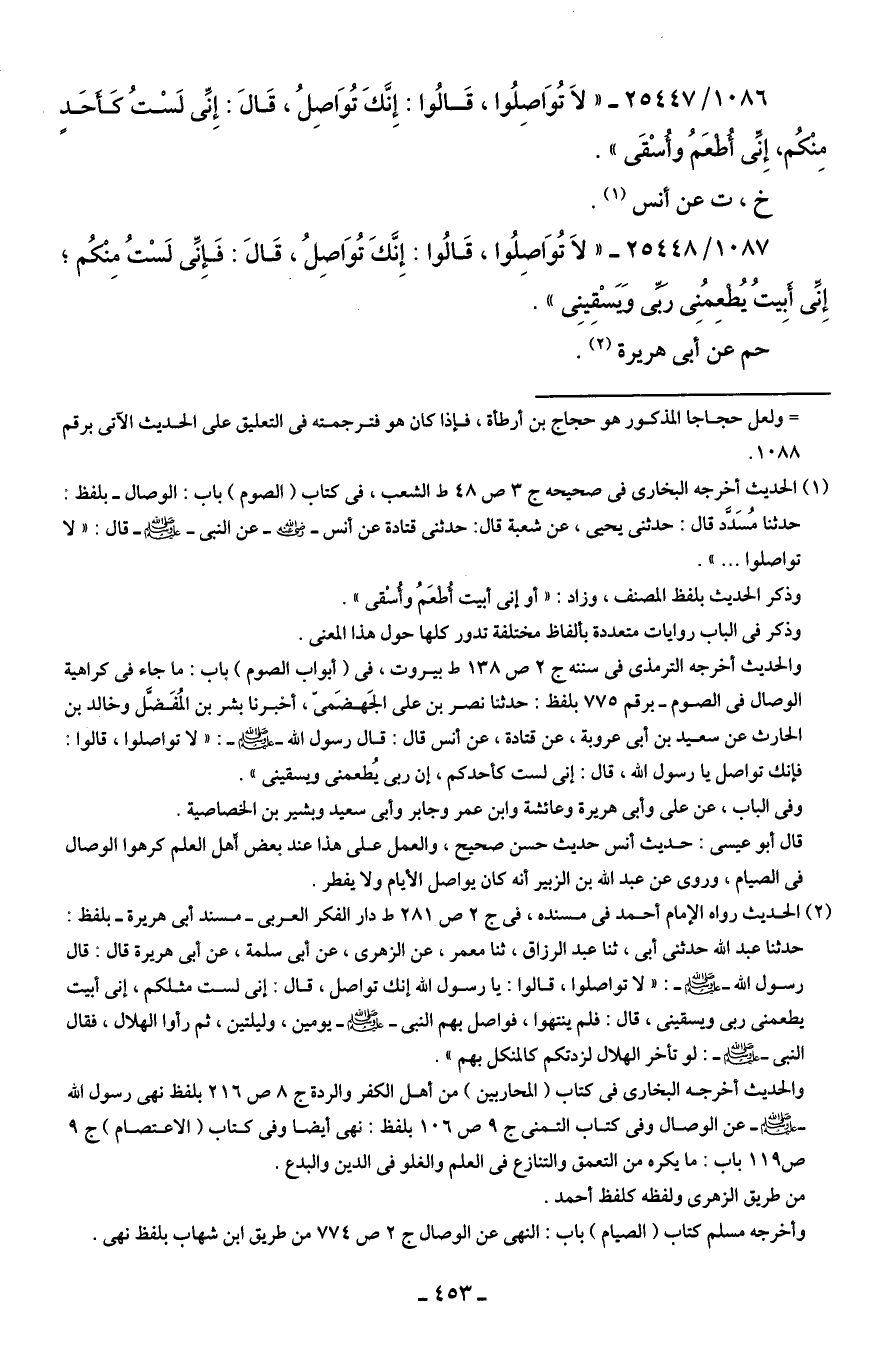 ٢٥٤٤٧/١٠٨٦ ـ « لاَ تُوَاصِلُوا ، قَـالُوا : إِنَّكَ تُوَاصِلُ ، قَالَ : إِنِّى لَسْتُ كَـأَحَـدٍ
مِنْكُم، إِنِّى أُطْعَمُ وأُسْقَى » .
خ ، ت عن أنس (١) .
٢٥٤٤٨/١٠٨٧ ـ « لاَ تُوَاصِلُوا ، قَـالُوا : إِنَّكَ تُوَاصِلُ ، قَـالَ : فَـإِنِّى لَسْتُ مِنْكُم ؛
إِنِّى أَبِيتُ يُطْعِمُنِى رَبِّى وَيَسْقِينِى » .
حم عن أبى هريرة (٢) .
= ولعل حجـاجا المذكـور هو حجاج بن أرطأة ، فـإذا كان هو فتـرجمـته فى التعليق على الحـديث الآتى برقم
١٠٨٨.
(١) الحديث أخرجه البخارى فى صحيحه ج ٣ ص ٤٨ ط الشعب ، فى كتاب ( الصوم ) باب : الوصال ـ بلفظ :
حدثنا مُسَدَّد قال : حدثنى يحيى ، عن شعبة قال: حدثنى قتادة عن أنس ـ رضي الله عنه ـ عن النبى ـ ﷺ ـ قال : « لا
تواصلوا ... » .
وذكر الحديث بلفظ المصنف ، وزاد : « أو إنى أبيت أُطْعَمُ وأُسْقى » .
وذكر فى الباب روايات متعددة بألفاظ مختلفة تدور كلها حول هذا المعنى .
والحديث أخرجه الترمذى فى سننه ج ٢ ص ١٣٨ ط بيروت ، فى ( أبواب الصوم ) باب : ما جاء فى كراهية
الوصال فى الصوم ـ برقم ٧٧٥ بلفظ : حدثنا نصـر بن على الجَهـضَمىّ ، أخبـرنا بشر بن المُفَـضَّل وخالد بن
الحارث عن سعـيد بن أبى عروبة ، عن قتادة ، عن أنس قال : قـال رسول الله ـ ﷺ ـ : « لا تواصلوا ، قالوا :
فإنك تواصل يا رسول الله ، قال : إنى لست كأحدكم ، إن ربى يُطعمنى ويسقينى » .
وفى الباب ، عن على وأبى هريرة وعائشة وابن عمر وجابر وأبى سعيد وبشير بن الخصاصية .
قال أبو عيسى : حـديث أنس حديث حسن صحيح ، والعمل عـلى هذا عند بعض أهل العلم كرهوا الوصال
فى الصيام ، وروى عن عبد الله بن الزبير أنه كان يواصل الأيام ولا يفطر .
(٢) الحـديث رواه الإمام أحمد فى مسنده ، فى ج ٢ ص ٢٨١ ط دار الفكر العربى ـ مسند أبى هريرة ـ بلفظ :
حدثنا عبد الله حدثنى أبى ، ثنا عبد الرزاق ، ثنا معمر ، عن الزهرى ، عن أبى سلمة ، عن أبى هريرة قال : قال
رسول الله ـ ﷺ ـ : « لا تواصلوا ، قـالوا : يا رسول الله إنك تواصل ، قـال : إنى لست مثـلكم ، إنى أبيت
يطعمنى ربى ويسقينى ، قال : فلم ينتهوا ، فواصل بهم النبى ـ ﷺ ـ يومين ، وليلتين ، ثم رأوا الهلال ، فقال
النبى ـ ﷺ ـ : لو تأخر الهلال لزدتكم كالمنكل بهم » .
والحديث أخرجـه البخارى فى كتاب ( المحاربين ) من أهـل الكفر والردة ج ٨ ص ٢١٦ بلفظ نهى رسول الله
ـ ﷺ ـ عن الوصـال وفى كتـاب التـمنى ج ٩ ص ١٠٦ بلفظ : نهى أيضـا وفى كـتاب ( الاعـتصـام ) ج ٩
ص١١٩ باب : ما يكره من التعمق والتنازع فى العلم والغلو فى الدين والبدع .
من طريق الزهرى ولفظه كلفظ أحمد .
وأخرجه مسلم كتاب ( الصيام ) باب : النهى عن الوصال ج ٢ ص ٧٧٤ من طريق ابن شهاب بلفظ نهى .
ـ ٤٥٣ ـ